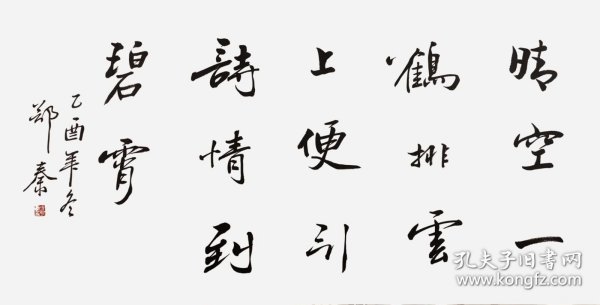 晴空一
鶴排雲
上便引
詩情到
碧霄
乙酉年冬
鄭秦
孔夫子旧书网
www.kongfz.com